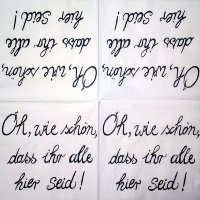 Oh, wie schön,
dass ihr alle
hier seid!
Oh, wie schön,
dass ihr alle
hier seid!
Oh, wie schön,
dass ihr alle
hier seid!
Oh, wie schön,
dass ihr alle
hier seid!